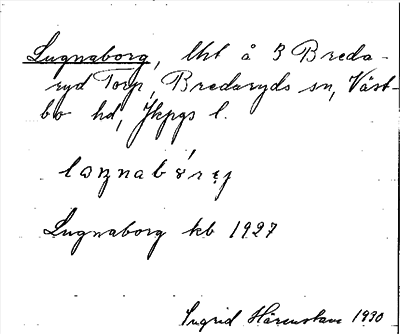 Lugnaborg, lht å 3 Breda-
ryd Torp, Bredaryds sn, Väst-
bo hd, Jkpgs l.
Lugnaborg kb 1927
Ingrid Härenstam 1930